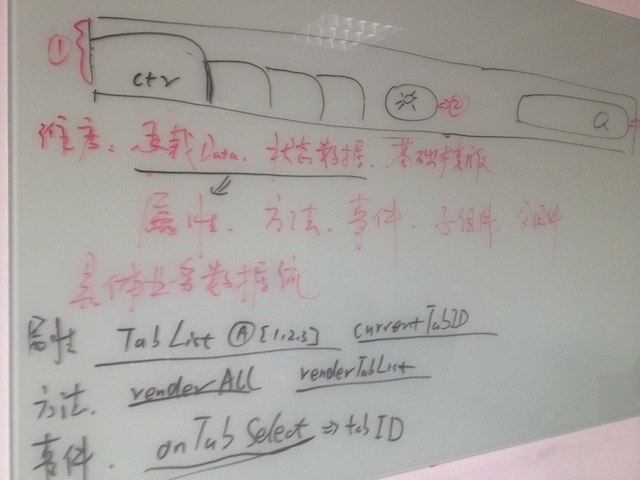 ① ctr ② Q
维度：承载Data、状态数据、基础模版
属性、方法、事件、子组件、父组件
具体业务数据流
属性 TabList Ⓐ [1,2,3] currentTabID
方法、 renderAll renderTabList
事件、 onTabSelect ⇒ tabID